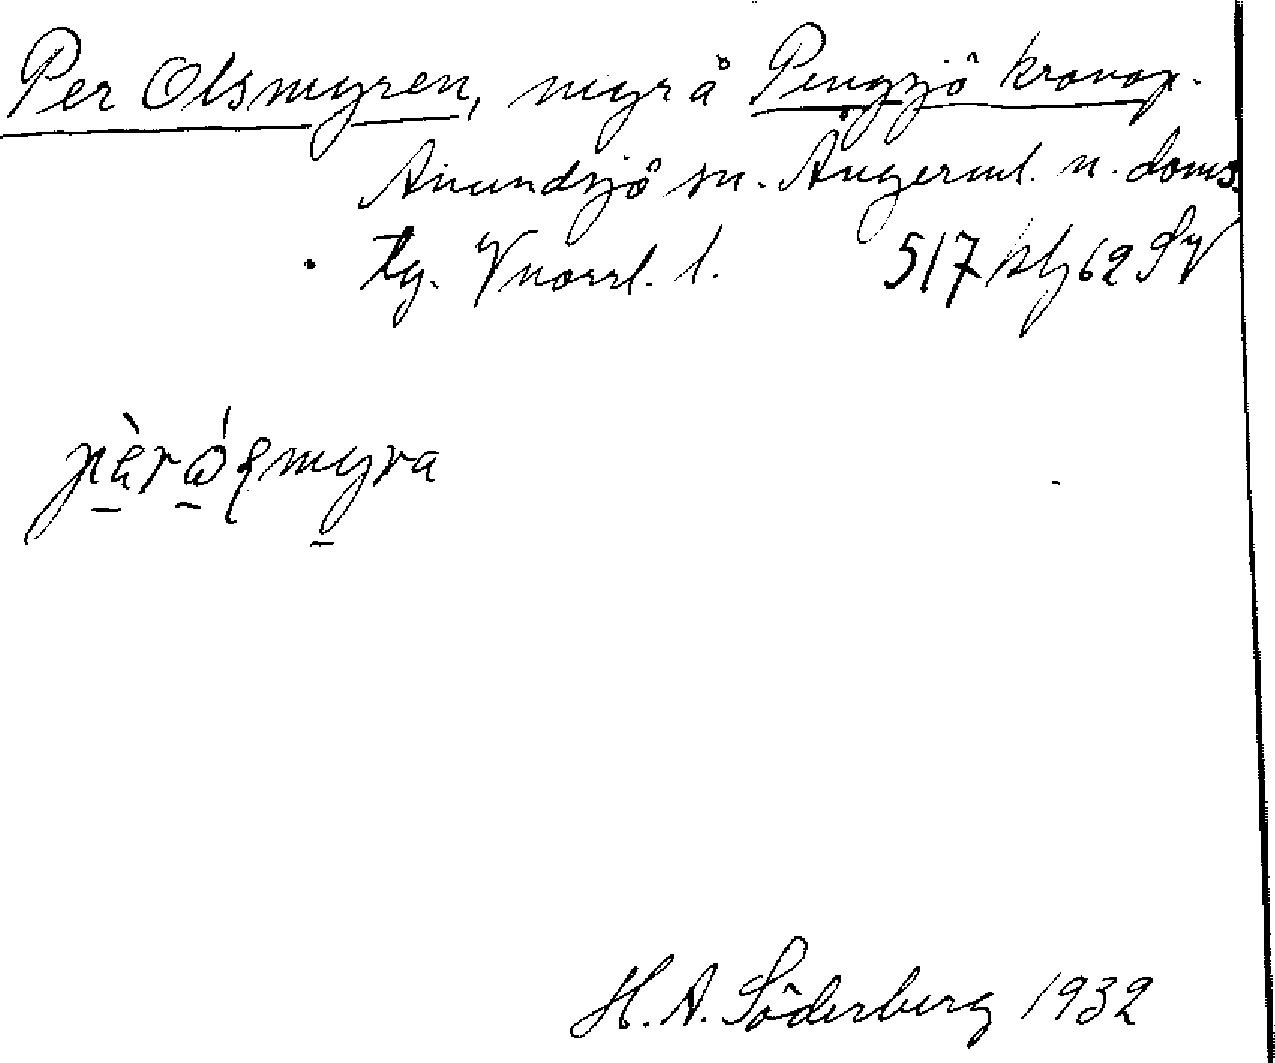 Per Olsmyren, myr å Pengsjö kronop.
Anundsjö sn. Ångerml. n. doms.
tg. Vnorrl. l. 517 62
pèrólmyra
H. A. Söderberg 1932